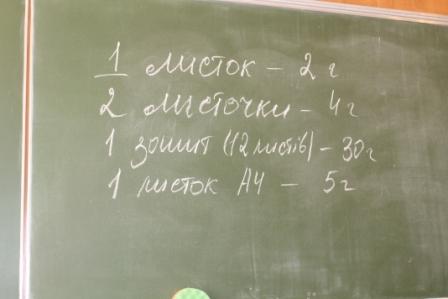 1 листок – 2 г
2 листочки – 4 г
1 зошит (12 листів) – 30 г
1 листок А4 – 5 г